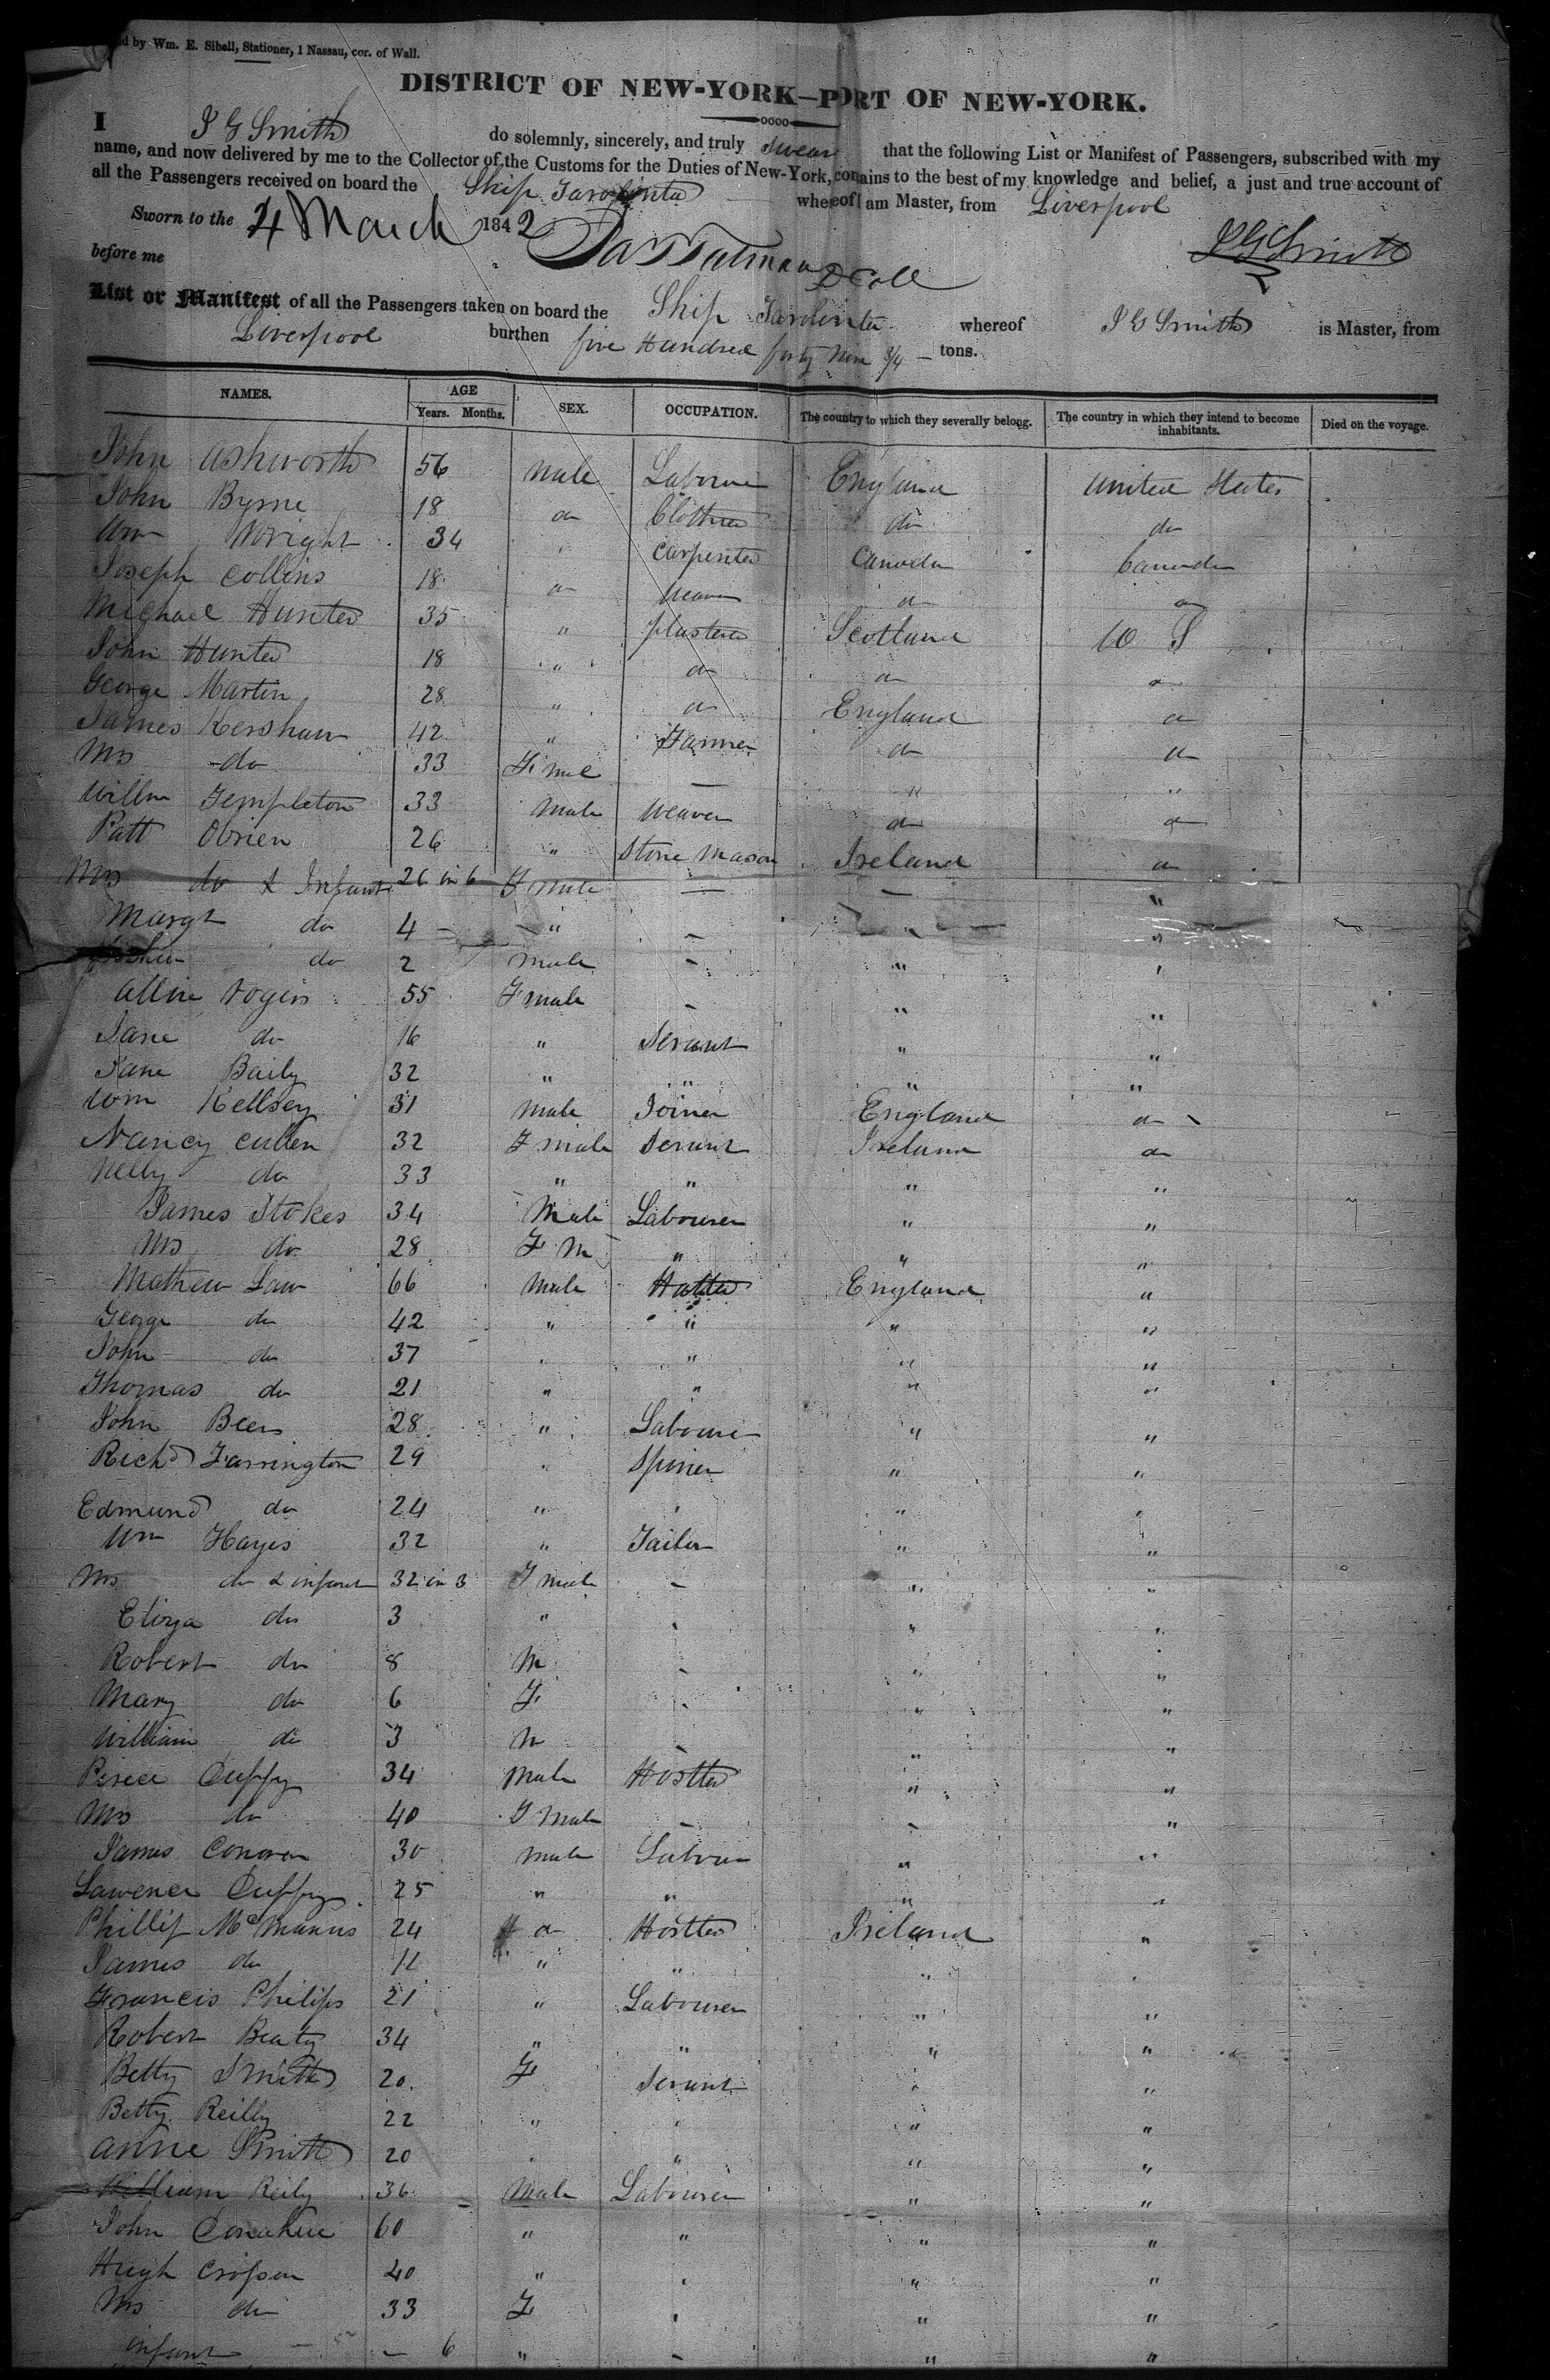 by Wm. E. Sibell, Stationer, 1 Nassau, cor. of Wall.
DISTRICT OF NEW-YORK—PORT OF NEW-YORK.
I J G Smith do solemnly, sincerely, and truly swear that the following List or Manifest of Passengers, subscribed with my
name, and now delivered by me to the Collector of the Customs for the Duties of New-York, contains to the best of my knowledge and belief, a just and true account of
all the Passengers received on board the Ship Tarolinta whereof I am Master, from Liverpool
Sworn to the 4 March 1842 J G Smith
before me
List or Manifest of all the Passengers taken on board the Ship Tarolinta whereof J G Smith is Master, from
Liverpool burthen five Hundred forty Nine 3/4 — tons.
NAMES. AGE SEX. OCCUPATION. The country to which they severally belong. The country in which they intend to become inhabitants. Died on the voyage.
Years. Months.
John Ashworth 56 male Labourer England United States
John Byrne 18 do Clothier do do
Wm Wright 34 " Carpenter Canada Canada
Joseph Collins 18 do Weaver do do
Michael Hunter 35 " plasterer Scotland U S
John Hunter 18 " do do do
George Martin 28 " do England do
James Kershaw 42 " Farmer do do
Mrs do 33 Fmal — " "
Willm Templeton 33 male Weaver do do
Patt Obrien 26 " Stone Mason Ireland do
Mrs do & Infant 26 in 6 Fmale — — "
Margt do 4 " - " "
do 2 male - " "
55 Fmale - " "
Jane do 16 " Servant " "
Jane Baily 32 " " " "
Wm Kellsey 31 male Joiner England do
Nancy Cullen 32 Fmale Servant Ireland do
Nelly do 33 " " " "
James Stokes 34 Male Labourer " "
Mrs do 28 F m " " "
Mathew Law 66 male Hatter England "
George do 42 " " " "
John do 37 " " " "
Thomas do 21 " " " "
John Beers 28 " Labourer " "
Richd Farrington 29 " Spiner " "
Edmund do 24 " " " "
Wm Hayes 32 " Tailor " "
Mrs do & infant 32 in 3 Fmale - " "
Eliza do 3 " - " "
Robert do 8 M - " "
Mary do 6 F - " "
William do 3 M - " "
Peirce Duffy 34 male Hostler " "
Mrs do 40 Fmale - - "
James Conoron 30 male Labour " "
Lawence Duffy 25 " " " "
Phillip McManus 24 do Hostler Ireland "
James do 11 " " " "
Francis Philips 21 " Labourer " "
Robert Beaty 34 " " " "
Betty Smith 20 F Servant " "
Betty Reilly 22 " " " "
Anne Smith 20 " " " "
William Reily 36 Male Labourer " "
John Donahue 60 " " " "
Hugh 40 " " " "
Mrs do 33 F " " "
infant — 6 " - " "